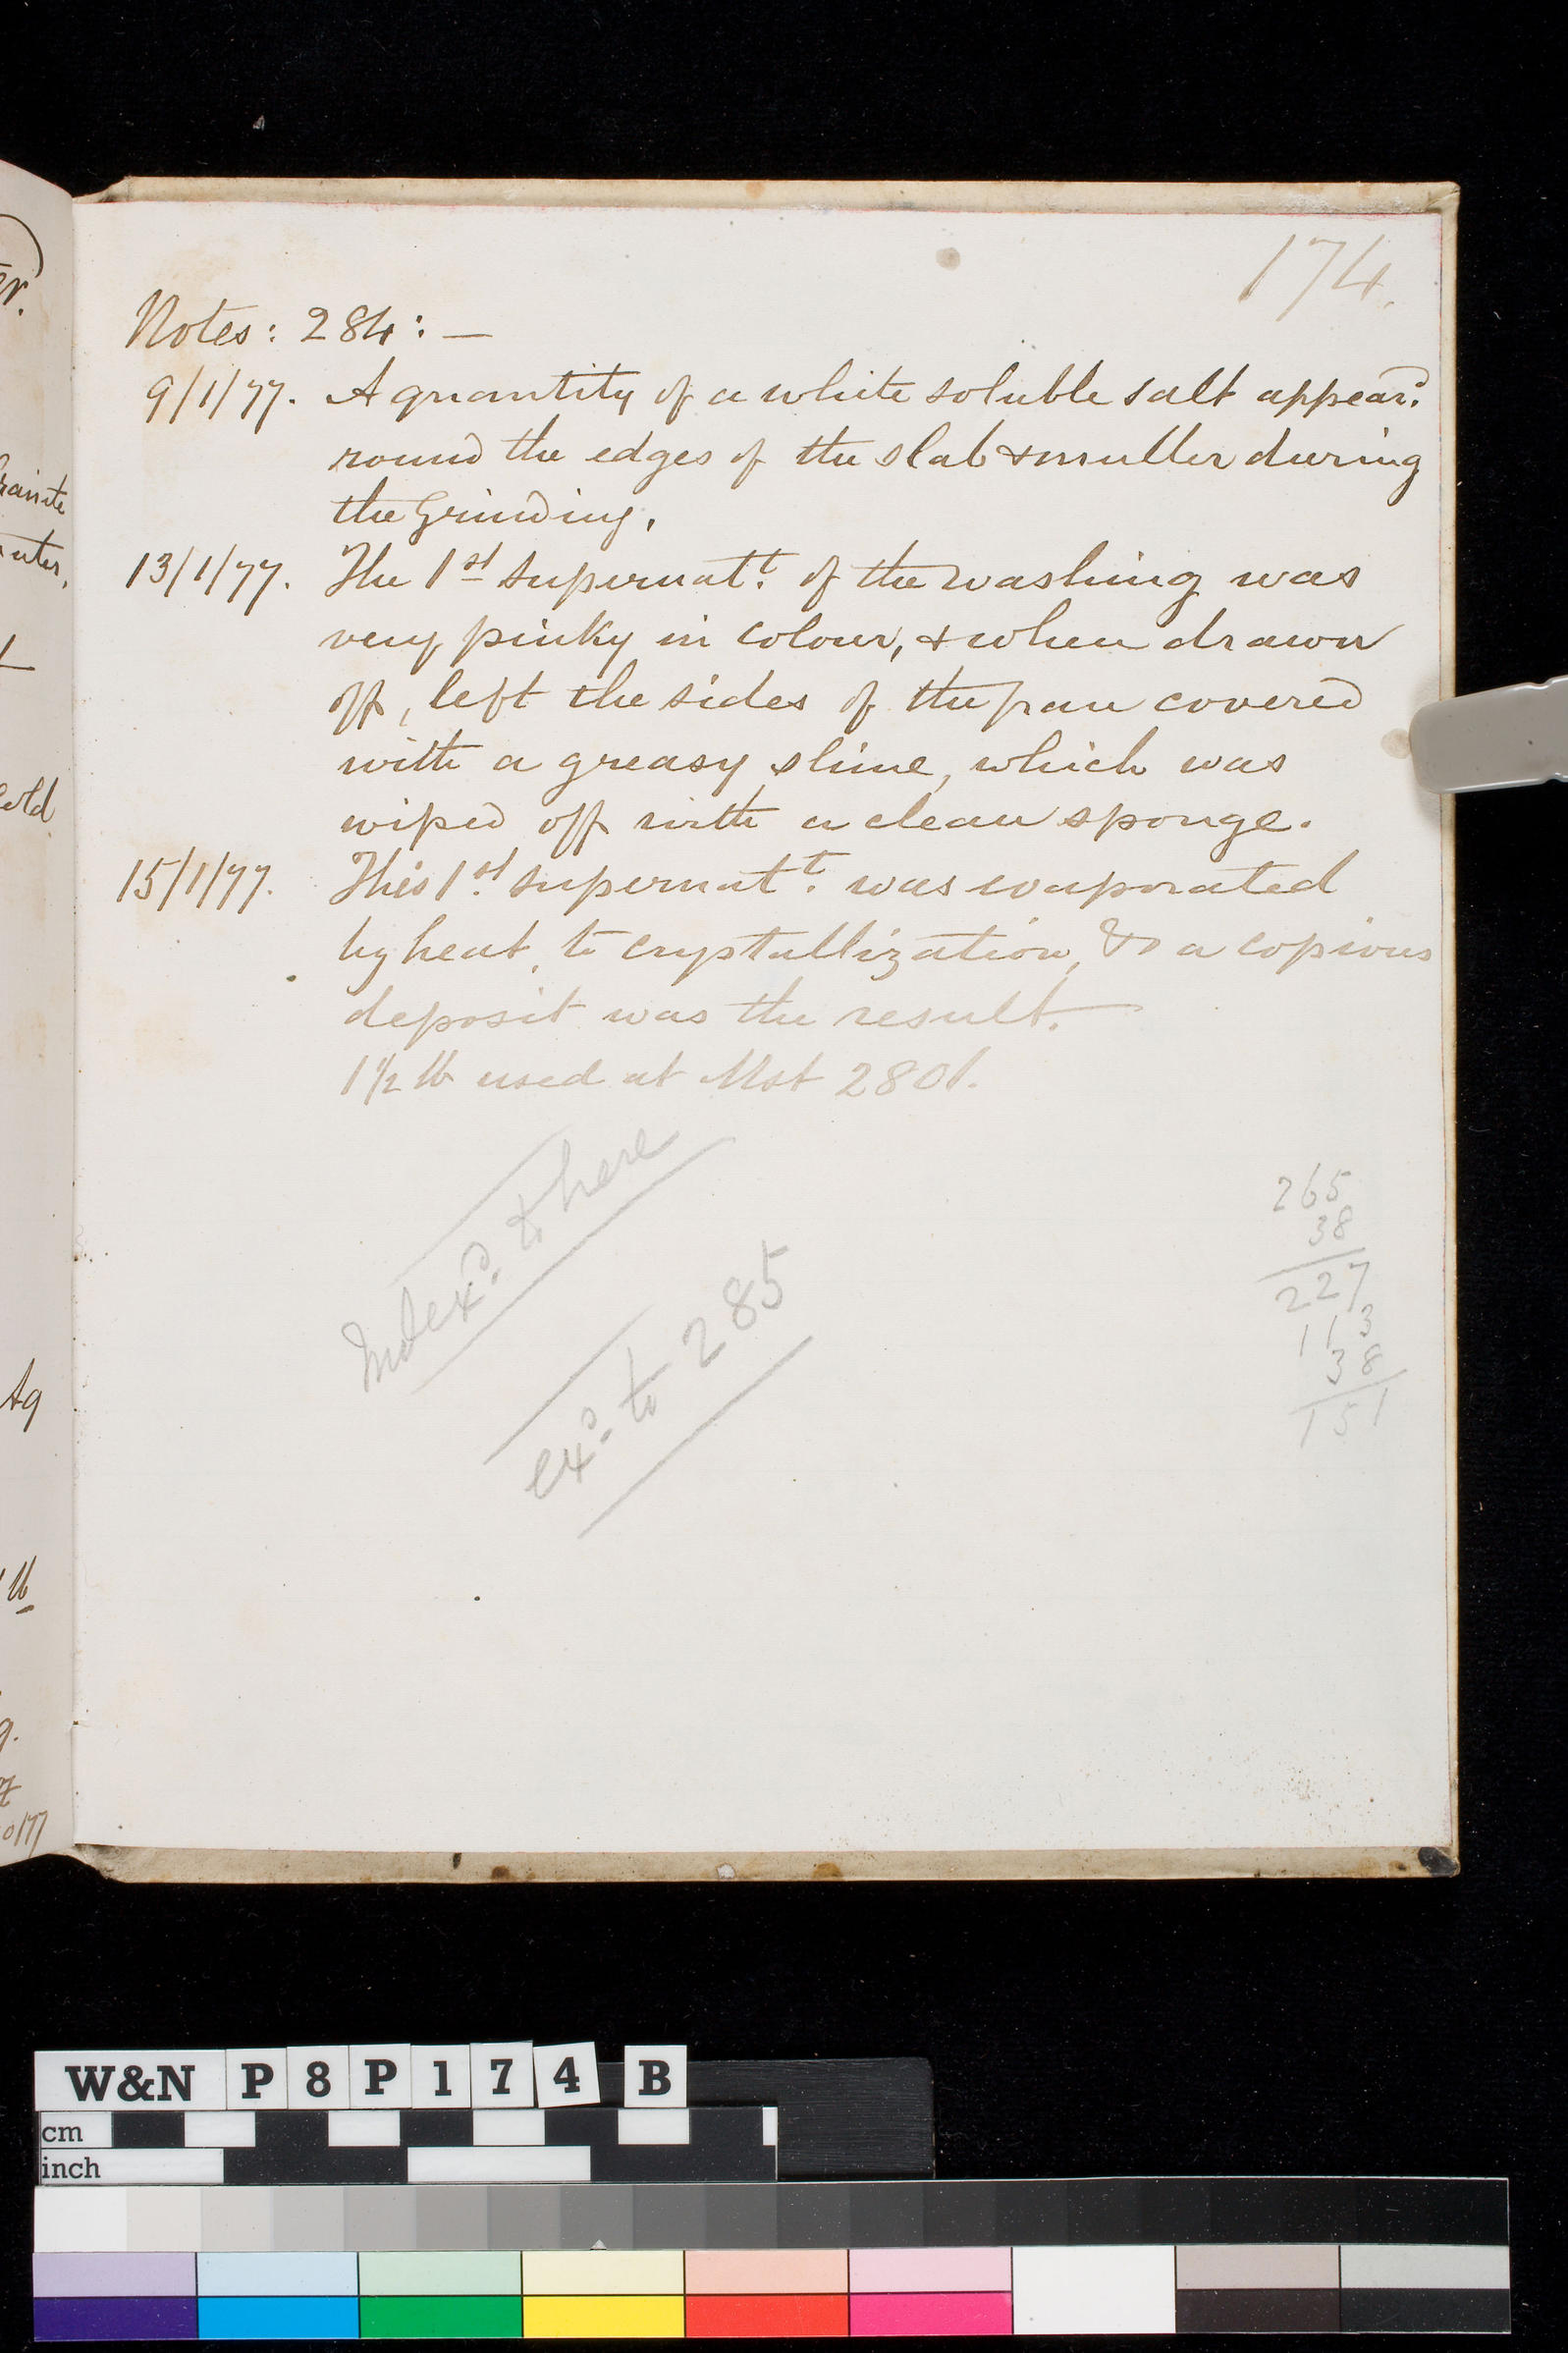 174.
Notes: 284: —
9/1/77. A quantity of a white soluble salt appear.d
round the edges of the slab & muller during
the Grinding.
13/1/77. The 1st supernatt. of the washing was
very pinky in colour, & when drawn
off, left the sides of the pan covered
with a greasy slime, which was
wiped off with a clean sponge.
15/1/77. This 1st supernatt. was evaporated
by heat, to crystallization, & a copious
deposit was the result.
1 1/2 lb used at Mst 2801.
Indexd. to here
exd. to 285
265
38
227
113
38
151
er.
uter,
Aq
lb
W&N P8P174 B
cm
inch